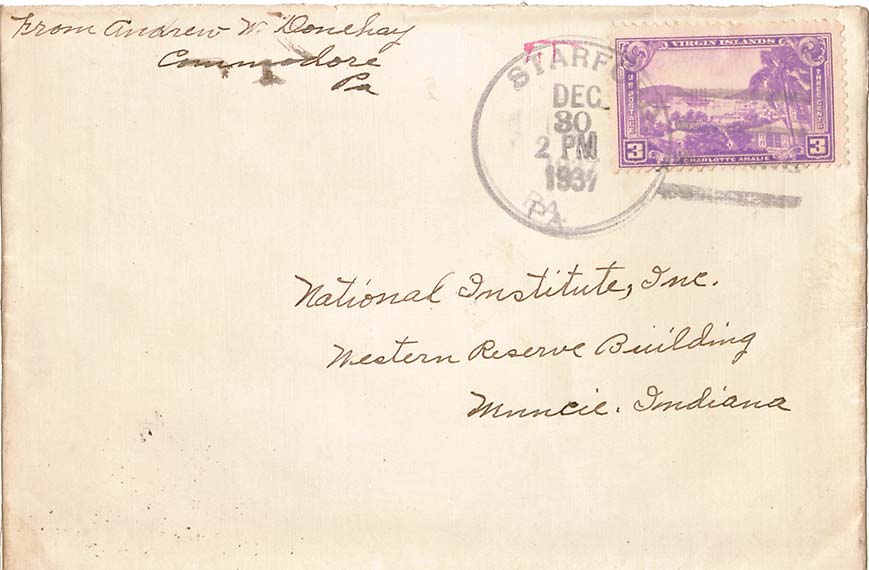 From Andrew W. Donehay
Commodore
Pa
STARFORD
DEC
30
2 PM
1937
PA
VIRGIN ISLANDS
U S POSTAGE
THREE CENTS
3
CHARLOTTE AMALIE
3
National Institute, Inc.
Western Reserve Building
Muncie. Indiana